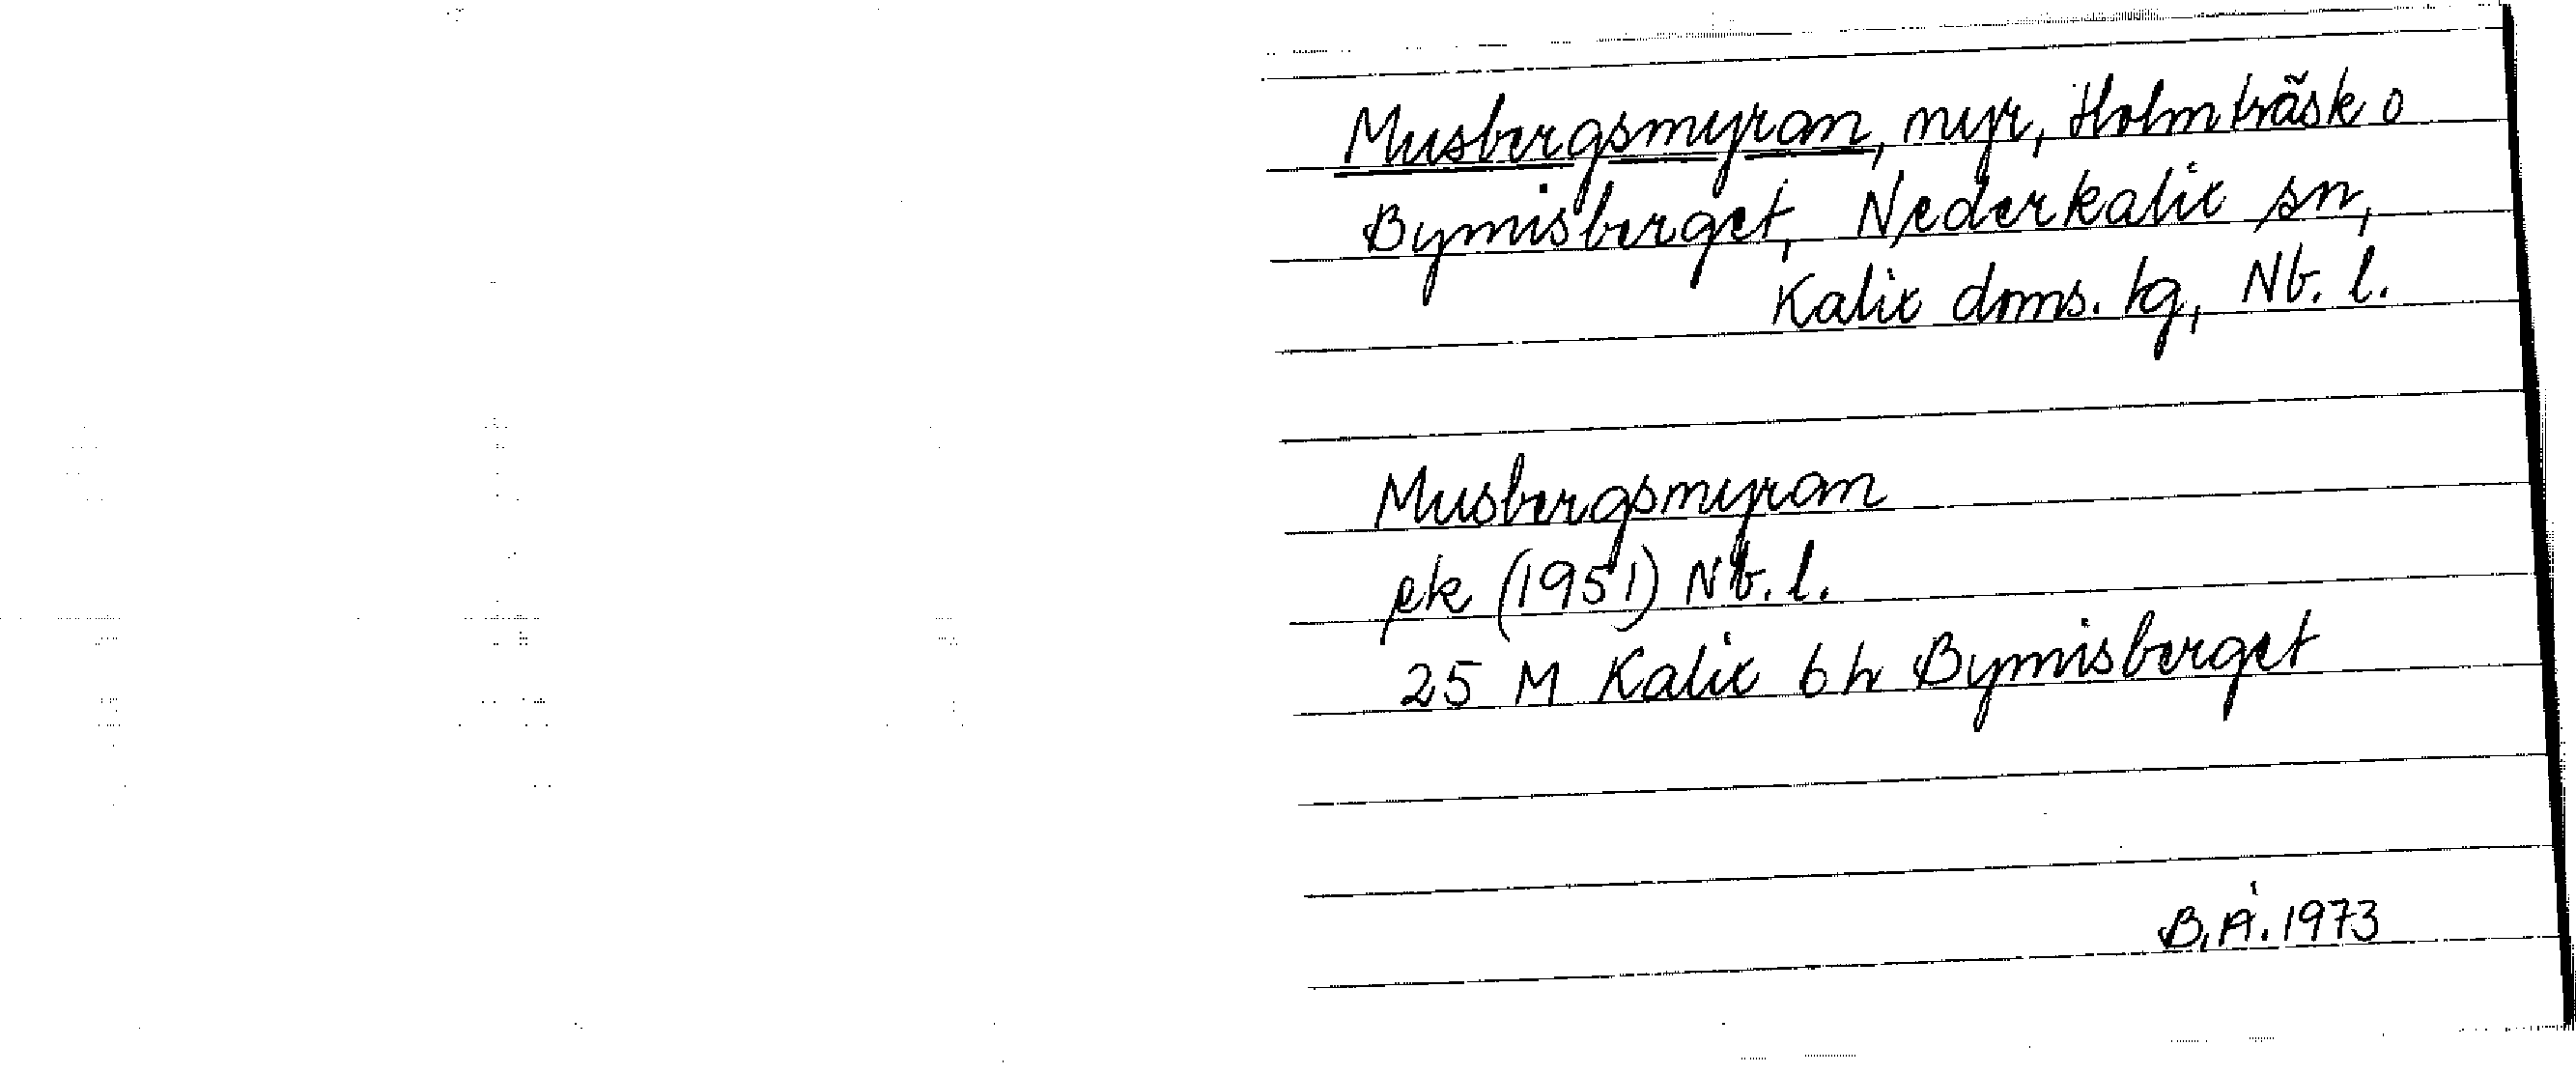 Musbergsmyran, myr, Holmträsk o
Bymisberget, Nederkalix sn,
Kalix doms. tg, Nb. l.
Musbergsmyran
ek (1951) Nb. l.
25 M Kalix 6 h Bymisberget
B.Å. 1973